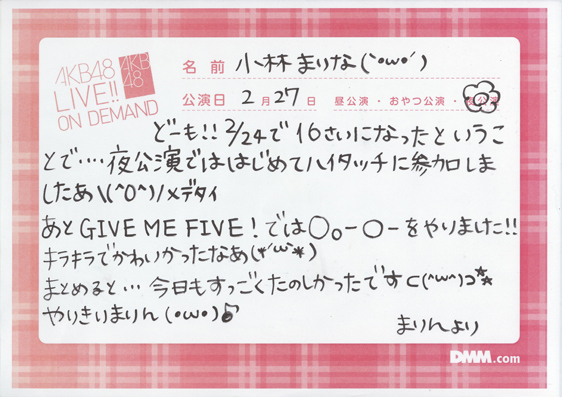 AKB48
LIVE!!
ON DEMAND
AKB
48
名前 小林まりな(`・ω・´)
公演日 2月27日 昼公演・おやつ公演・夜公演
どーも!! 2/24で16さいになったというこ
とで‥‥夜公演でははじめてハイタッチに参加しま
したあ\(^O^)/メデタイ
あとGIVE ME FIVE!では〇o-〇-をやりました!!
キラキラでかわいかったなあ(*´ω`*)
まとめると…今日もすっごくたのしかったです⊂(^ω^)⊃**
やりきりまりん(・ω・)♪
まりんより
DMM.com